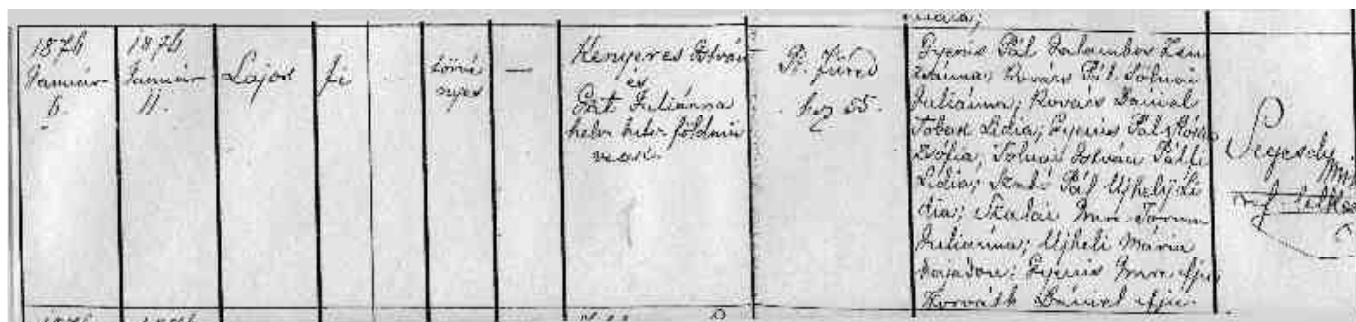 1876
Január
6.
1876
Január
11.
Lajos
fi
törvé
nyes
—
Kenyeres István
és
Gát Juliánna
helv. hitv. földmű
vesek
B. Füred
hsz 55.
Gyenis Pál Galambos Zsu
zsánna; Kovács Pál Tolnai
Juliánna; Kovács Dániel
Lidia; Gyenis Pál
Zsófia; Tolnai István
Lidia; Szabó Pál Ujhelyi Li
dia; Szalai Imre
Juliánna; Ujheli Mária
hajadon; Gyenis Imre ifju
Horváth Dániel ifju.
Segesdy
ref. lelkész